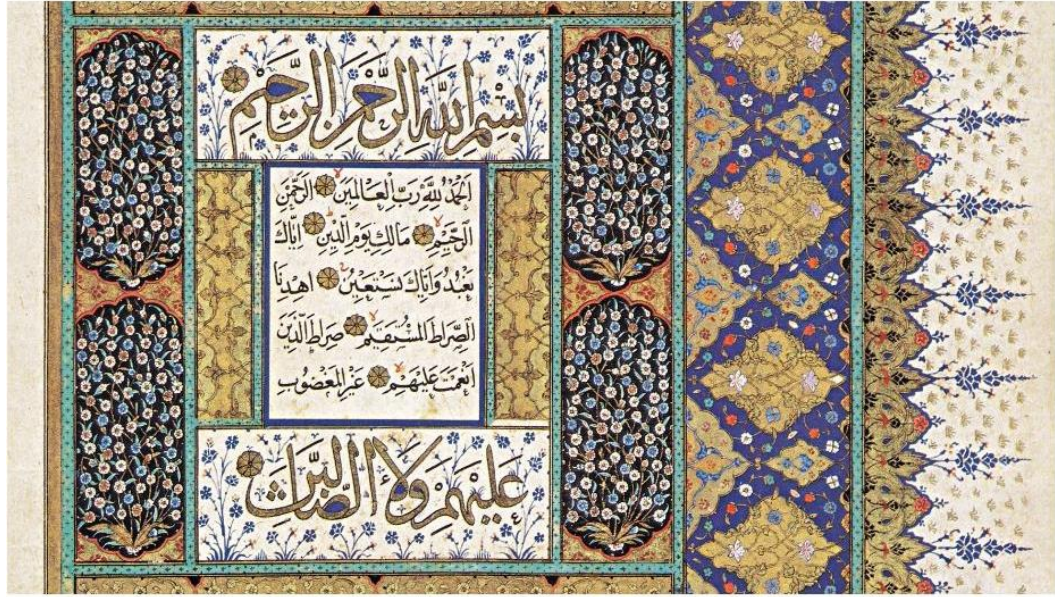 بِسْمِ اللّٰهِ الرَّحْمٰنِ الرَّحِيْمِ
اَلْحَمْدُ لِلّٰهِ رَبِّ الْعَالَمِيْنَ الرَّحْمٰنِ
الرَّحِيْمِ مَالِكِ يَوْمِ الدِّيْنِ اِيَّاكَ
نَعْبُدُ وَاِيَّاكَ نَسْتَعِيْنُ اِهْدِنَا
الصِّرَاطَ الْمُسْتَقِيْمَ صِرَاطَ الَّذِيْنَ
اَنْعَمْتَ عَلَيْهِمْ غَيْرِ الْمَغْضُوْبِ
عَلَيْهِمْ وَلَا الضَّالِّيْنَ